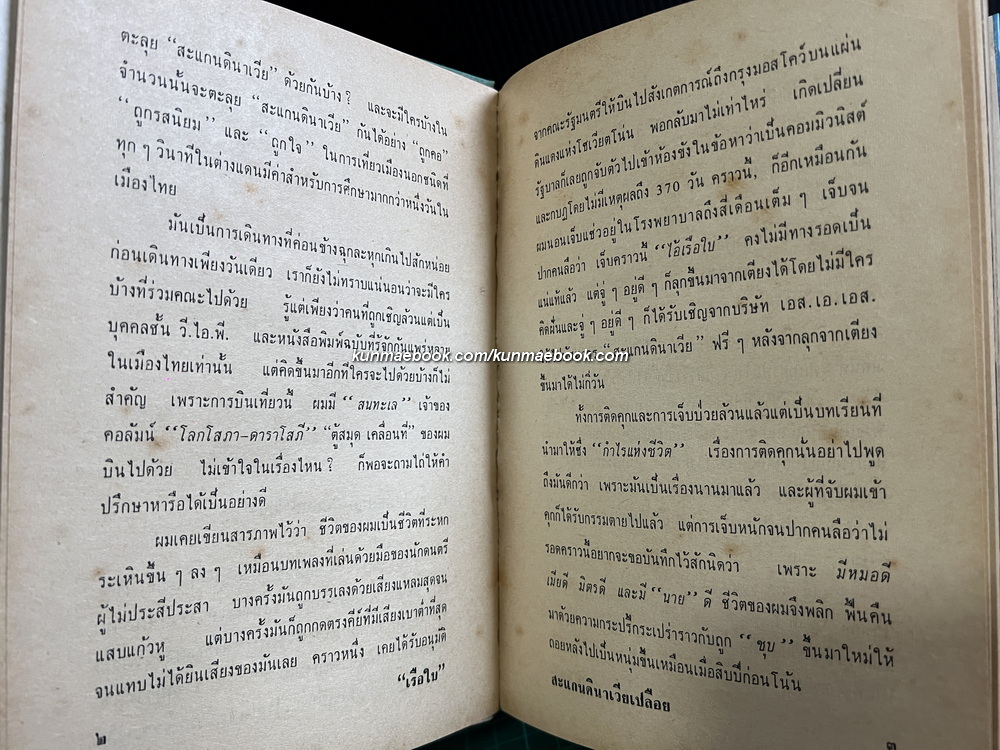 ตะลุย “สะแกนดินาเวีย” ด้วยกันบ้าง ? และจะมีใครบ้างใน
จำนวนนั้นจะตะลุย “สะแกนดินาเวีย” กันได้อย่าง “ถูกคอ”
“ถูกรสนิยม” และ “ถูกใจ” ในการเที่ยวเมืองนอกชนิดที่
ทุก ๆ วินาทีในต่างแดนมีค่าสำหรับการศึกษามากกว่าหนึ่งวันใน
เมืองไทย
มันเป็นการเดินทางที่ค่อนข้างฉุกละหุกเกินไปสักหน่อย
ก่อนเดินทางเพียงวันเดียว เราก็ยังไม่ทราบแน่นอนว่าจะมีใคร
บ้างที่ร่วมคณะไปด้วย รู้แต่เพียงว่าคนที่ถูกเชิญล้วนแต่เป็น
บุคคลชั้น วี.ไอ.พี. และหนังสือพิมพ์ฉบับที่รู้จักกันแพร่หลาย
ในเมืองไทยเท่านั้น แต่คิดขึ้นมาอีกทีใครจะไปด้วยบ้างก็ไม่
สำคัญ เพราะการบินเที่ยวนี้ ผมมี “สนทะเล” เจ้าของ
คอลัมน์ “โลกโสภา–ดาราโสภี” “ตู้สมุด เคลื่อนที่” ของผม
บินไปด้วย ไม่เข้าใจในเรื่องไหน ? ก็พอจะถามไถ่ให้คำ
ปรึกษาหารือได้เป็นอย่างดี
ผมเคยเขียนสารภาพไว้ว่า ชีวิตของผมเป็นชีวิตที่ระหก
ระเหินขึ้น ๆ ลง ๆ เหมือนบทเพลงที่เล่นด้วยมือของนักดนตรี
ผู้ไม่ประสีประสา บางครั้งมันถูกบรรเลงด้วยเสียงแหลมสุดจน
แสบแก้วหู แต่บางครั้งมันก็ถูกกดตรงคีย์ที่มีเสียงเบาต่ำที่สุด
จนแทบไม่ได้ยินเสียงของมันเลย คราวหนึ่ง เคยได้รับอนุมัติ
“เรือใบ”
๒
จากคณะรัฐมนตรีให้บินไปสังเกตการณ์ถึงกรุงมอสโคว์บนแผ่น
ดินแดงแห่งโซเวียตโน่น พอกลับมาไม่เท่าไหร่ เกิดเปลี่ยน
รัฐบาลก็เลยถูกจับตัวไปเข้าห้องขังในข้อหาว่าเป็นคอมมิวนิสต์
และกบฏโดยไม่มีเหตุผลถึง 370 วัน คราวนี้, ก็อีกเหมือนกัน
ผมนอนเจ็บแซ่วอยู่ในโรงพยาบาลถึงสี่เดือนเต็ม ๆ เจ็บจน
ปากคนลือว่า เจ็บคราวนี้ “ไอ้เรือใบ” คงไม่มีทางรอดเป็น
แน่แท้แล้ว แต่จู่ ๆ อยู่ดี ๆ ก็ลุกขึ้นมาจากเตียงได้โดยไม่มีใคร
คิดฝันและจู่ ๆ อยู่ดี ๆ ก็ได้รับเชิญจากบริษัท เอส.เอ.เอส.
“สะแกนดินาเวีย” ฟรี ๆ หลังจากลุกจากเตียง
ขึ้นมาได้ไม่กี่วัน
kunmaebook.com/kunmaebook.com
ทั้งการติดคุกและการเจ็บป่วยล้วนแล้วแต่เป็นบทเรียนที่
นำมาให้ซึ่ง “กำไรแห่งชีวิต” เรื่องการติดคุกนั้นอย่าไปพูด
ถึงมันดีกว่า เพราะมันเป็นเรื่องนานมาแล้ว และผู้ที่จับผมเข้า
คุกก็ได้รับกรรมตายไปแล้ว แต่การเจ็บหนักจนปากคนลือว่าไม่
รอดคราวนี้อยากจะขอบันทึกไว้สักนิดว่า เพราะ มีหมอดี
เมียดี มิตรดี และมี “นาย” ดี ชีวิตของผมจึงพลิก ฟื้นคืน
มาด้วยความกระปรี้กระเปร่าราวกับถูก “ชุบ” ขึ้นมาใหม่ให้
ถอยหลังไปเป็นหนุ่มขึ้นเหมือนเมื่อสิบปีก่อนโน้น
สะแกนดินาเวียเปลือย
๓